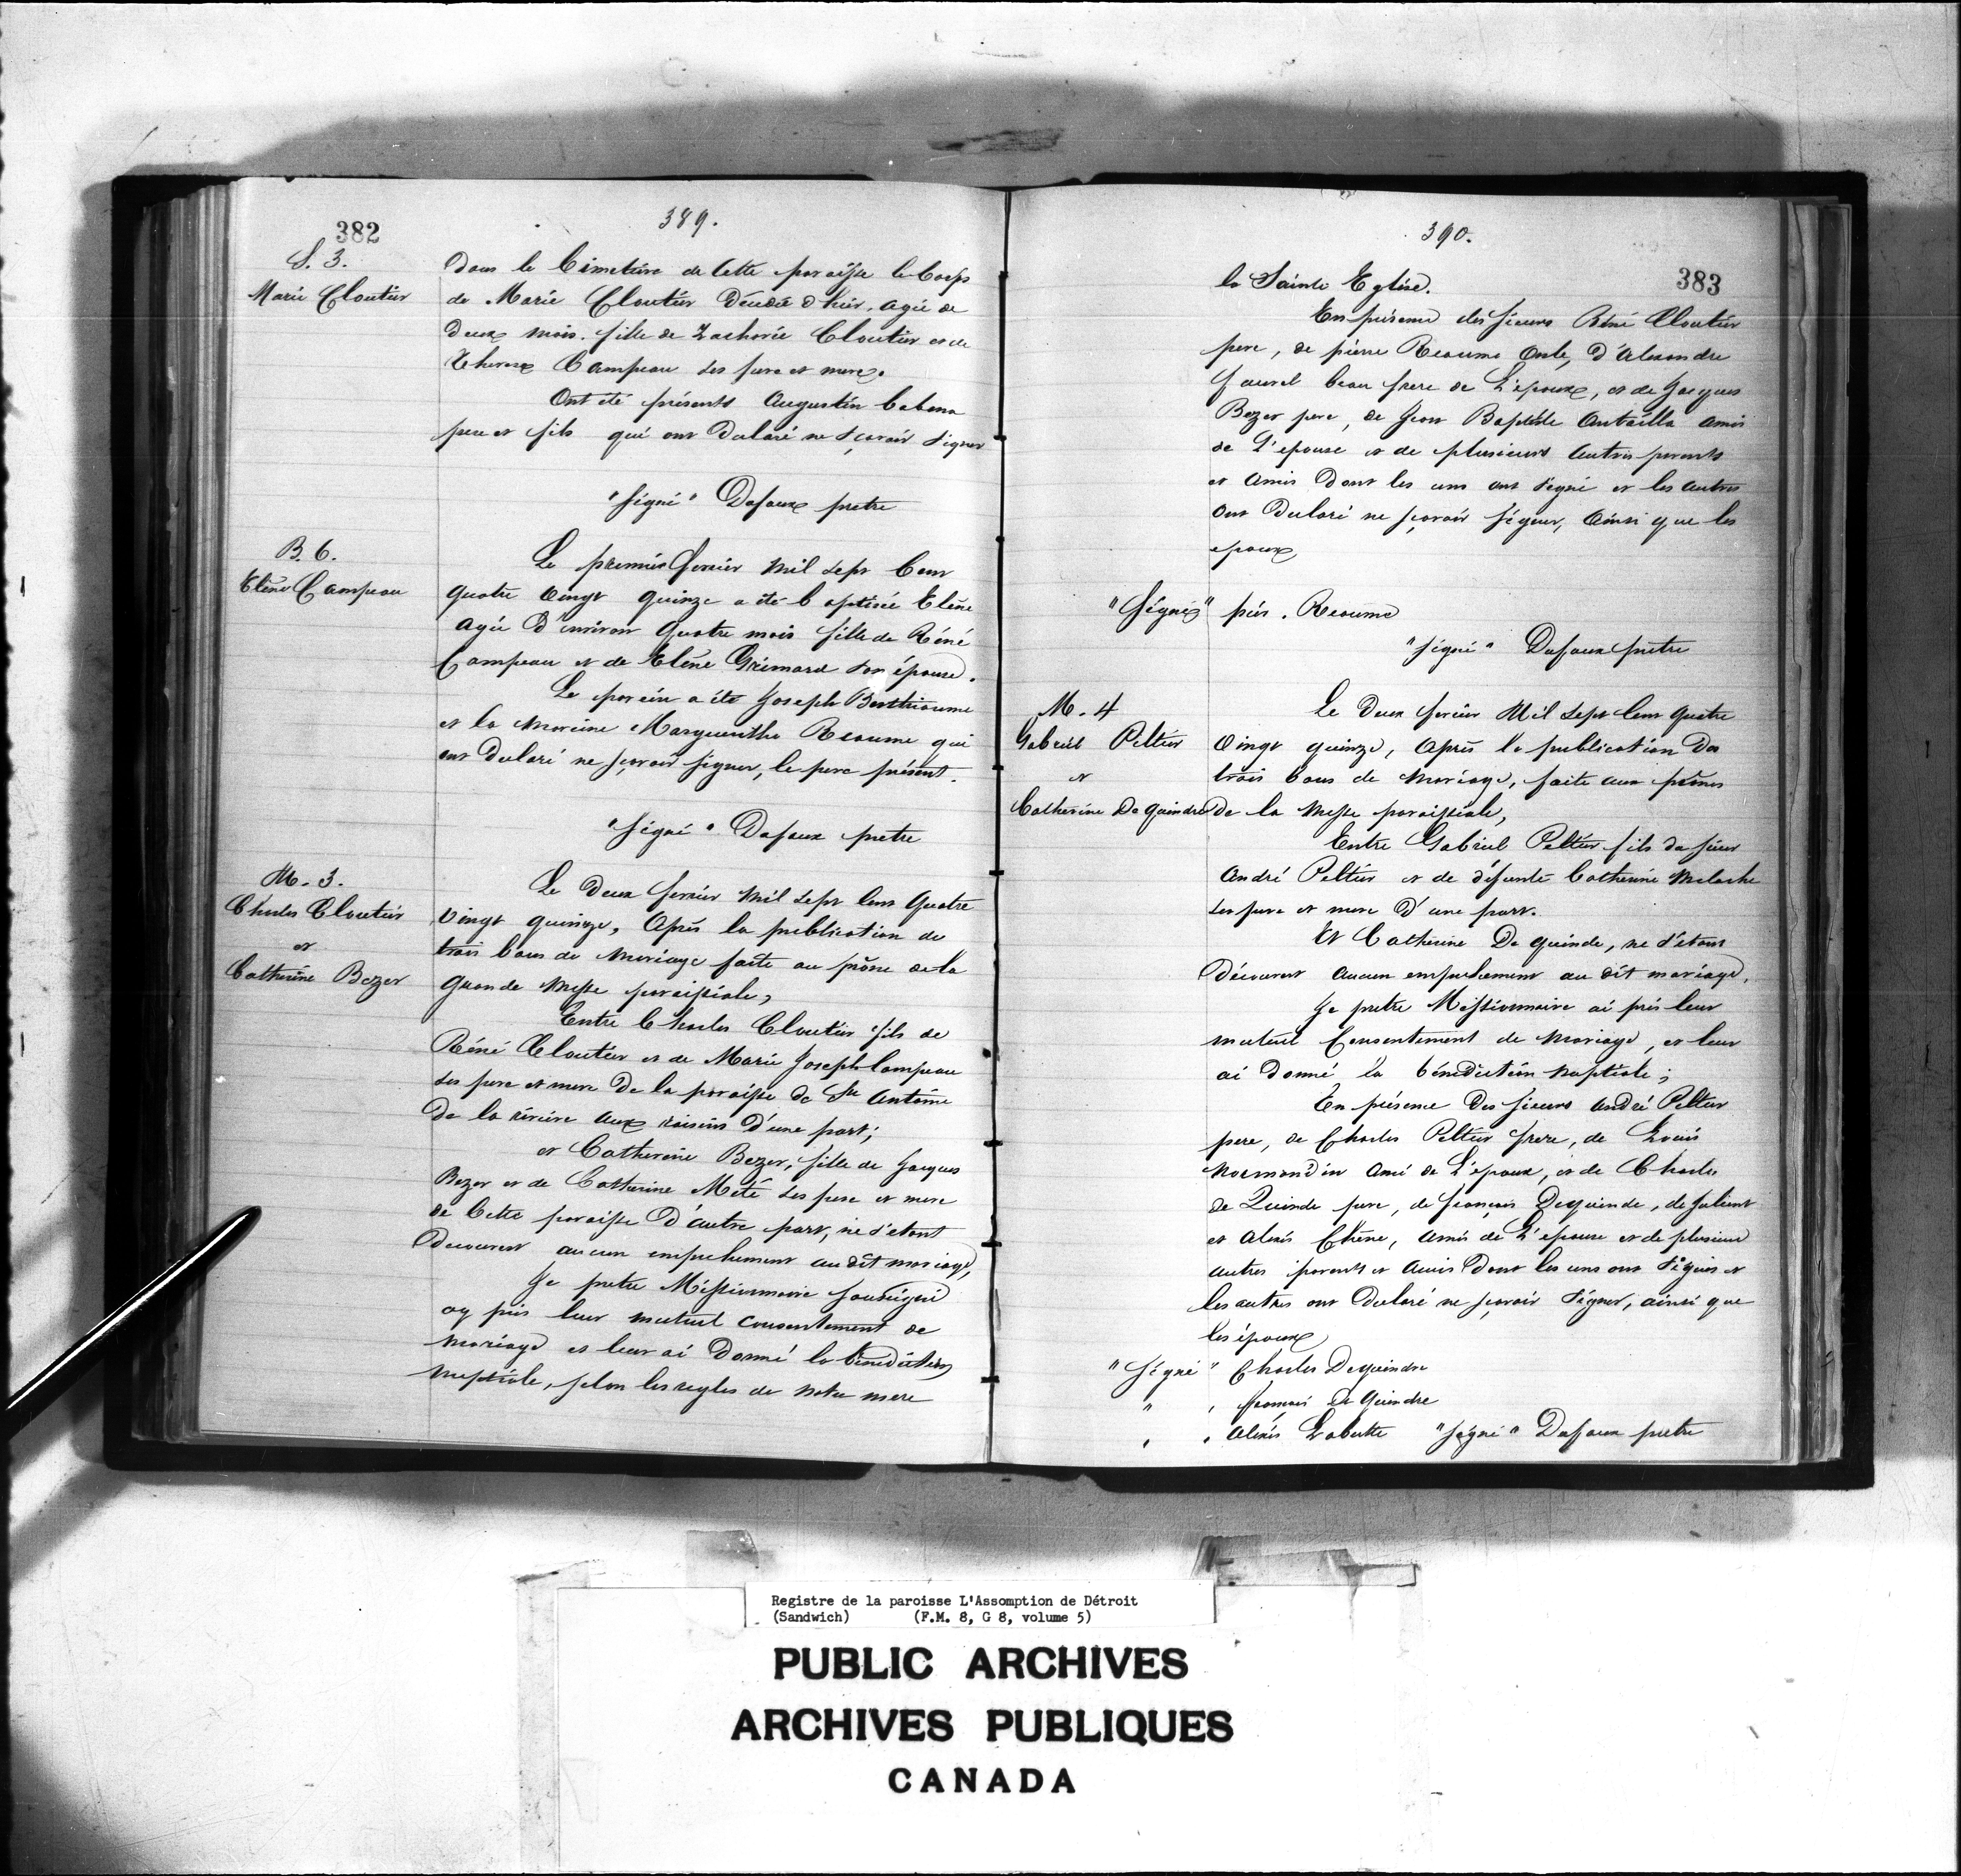 389.
382
S. 3.
Marie Cloutier
dans le Cimetière de Cette paroisse le Corps
de Marie Cloutier décédée d'hier, agée de
deux mois. fille de Zacharie Cloutier et de
Therese Campeau ses pere et mere.
Ont été présents Augustin Cabana
pere et fils qui ont declaré ne sçavoir signer
"Signé" Dufaux pretre
B. 6.
Elène Campeau
Le premier fevrier mil sept Cent
quatre vingt quinze a été baptisée Elène
agée d'environ quatre mois fille de Réné
Campeau et de Elène Grimard son épouse.
Le parein a été Joseph Berthiaume
et la mareine Marguerithe Reaume qui
ont declaré ne sçavoir signer, le pere présent.
"Signé" Dufaux pretre
M. 3.
Charles Cloutier
et
Catherine Bezer
Le deux fevrier mil sept Cent quatre
vingt quinze, Après la publication de
trois bans de mariage faite au prône de la
grande Messe paroissiale,
Entre Charles Cloutier fils de
Réné Cloutier et de Marie Joseph Campeau
ses pere et mere de la paroisse de St Antoine
de la rivière aux raisins d'une part;
et Catherine Bezer, fille de Jacques
Bezer et de Catherine Mété ses pere et mere
de Cette paroisse d'autre part, ne s'etant
decouvert aucun empechement au dit mariage,
Je pretre Missionnaire soussigné
ay pris leur mutuel consentement de
mariage et leur ai donné la bénédiction
nuptiale, selon les regles de notre mere
390.
383
la Sainte Eglise.
En présence des sieurs Réné Cloutier
pere, de pierre Reaume oncle, d'Alexandre
beau frere de L'epoux, et de Jacques
Bezer pere, de Jean Baptiste Antailla amis
de L'epouse et de plusieurs autres parents
et amis dont les uns ont signé et les autres
ont declaré ne sçavoir signer, ainsi que les
epoux
"Signé" pier. Reaume
"signé" Dufaux pretre
M. 4
Gabriel Peltier
et
Catherine De quindre
Le deux fevrier Mil sept Cent quatre
vingt quinze, Après la publication de
trois bans de mariage, faite aux prônes
de la Messe paroissiale,
Entre Gabriel Peltier fils du sieur
André Peltier et de défunte Catherine Meloche
ses pere et mere d'une part.
Et Catherine De quinde, ne s'etant
découvert aucun empechement au dit mariage,
Je pretre Missionnaire ai pris leur
mutuel Consentement de mariage, et leur
ai donné la bénédiction nuptiale;
En présence des sieurs André Peltier
pere, de Charles Peltier frere, de Louis
Normandin ami de L'epoux, et de Charles
de Quinde pere, de françois Dequinde, de
et Alexis Chêne, amis de L'epouse et de plusieurs
autres parents et amis dont les uns ont signés et
les autres ont declaré ne sçavoir signer, ainsi que
les époux
"Signé" Charles Dequindre
" " françois De Quindre
" " Alexis Labutte "signé" Dufaux pretre
Registre de la paroisse L'Assomption de Détroit
(Sandwich) (F.M. 8, G 8, volume 5)
PUBLIC ARCHIVES
ARCHIVES PUBLIQUES
CANADA